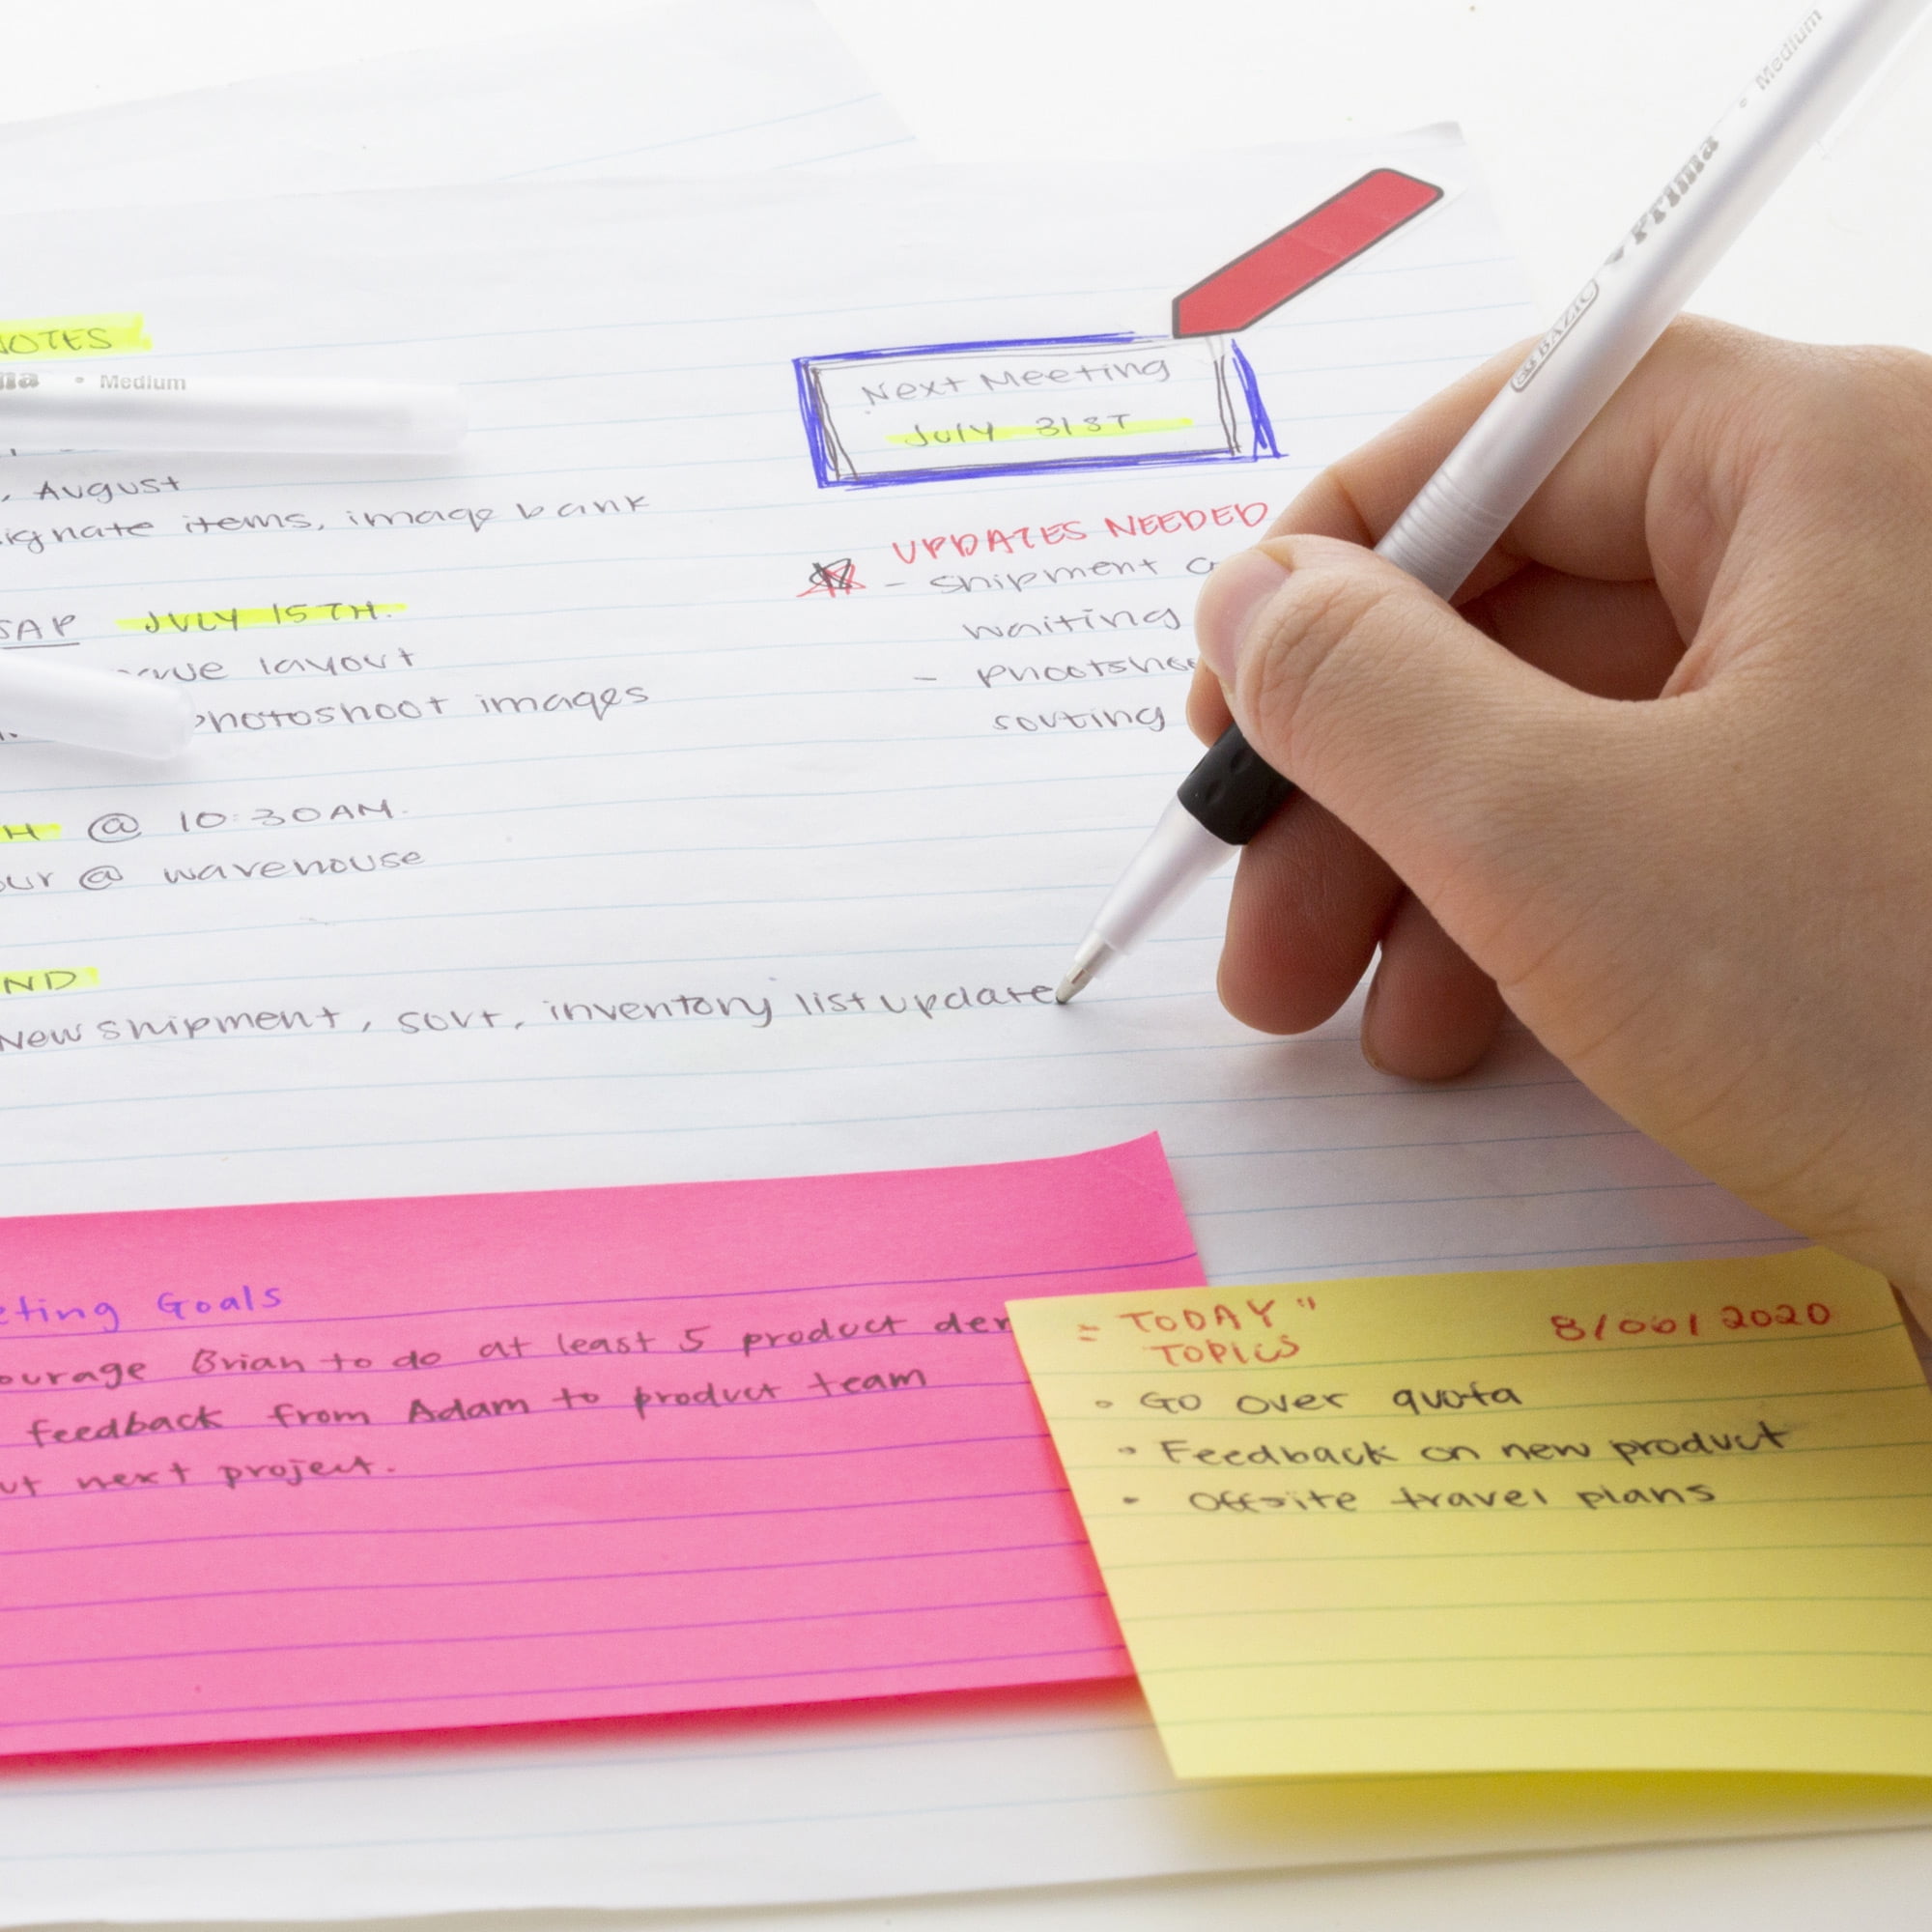 NOTES
• Medium
, August
ignate items, image bank
SAP JULY 15TH.
layout
photoshoot images
H @ 10:30AM.
our @ warehouse
ND
New shipment, sort, inventory list update
Next Meeting
July 31ST
UPDATES NEEDED
- shipment
waiting
-
sorting
BAZIC Prima • Medium
eting Goals
ourage Brian to do at least 5 product dem
feedback from Adam to product team
ut next project.
= TODAY "
TOPICS
8/06/2020
• Go over quota
• Feedback on new product
• Offsite travel plans